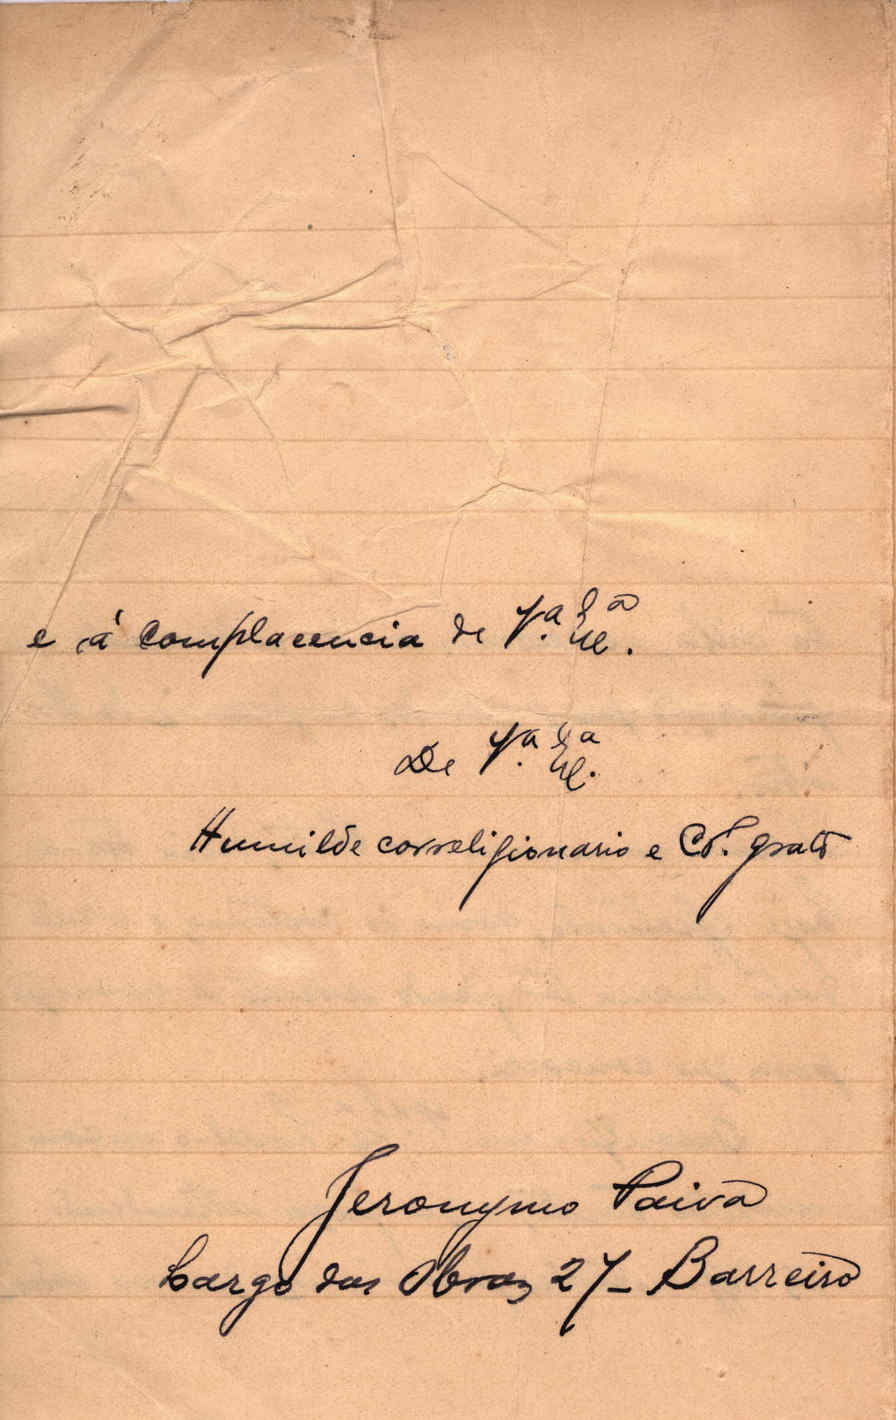 e á complacencia de Vª. Exª.
De Vª. Exª.
Humilde correligionario e Cdº. grato
Jeronymo Paiva
Largo das Obras 27 - Barreiro